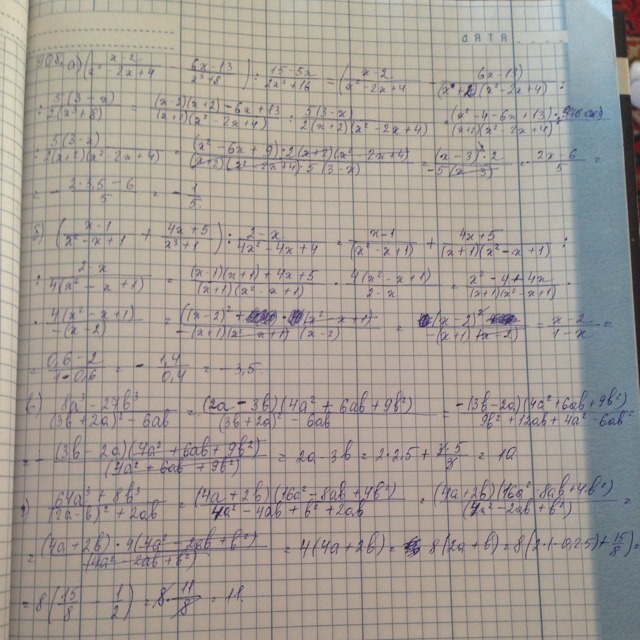 ДАТА
908. а) (x-2/x²-2x+4 - 6x-13/x³+8) : 15-5x/2x³+16 = (x-2/x²-2x+4 - 6x-13/(x+2)(x²-2x+4)) :
: 5(3-x)/2(x³+8) = (x-2)(x+2)-6x+13/(x+2)(x²-2x+4) : 5(3-x)/2(x+2)(x²-2x+4) = (x²-4-6x+13)/(x+2)(x²-2x+4) :
: 5(3-x)/2(x+2)(x²-2x+4) = (x²-6x+9)·2(x+2)(x²-2x+4)/(x+2)(x²-2x+4)·5(3-x) = (x-3)²·2/-5(x-3) = - 2x-6/5 =
= - 2·3,5-6/5 = - 1/5
б) (x-1/x²-x+1 + 4x+5/x³+1) : 2-x/4x²-4x+4 = x-1/(x²-x+1) + 4x+5/(x+1)(x²-x+1) :
: 2-x/4(x²-x+1) = (x-1)(x+1)+4x+5/(x+1)(x²-x+1) · 4(x²-x+1)/2-x = x²-4+4x/(x+1)(x²-x+1) ·
· 4(x²-x+1)/-(x-2) = ((x-2)² · (x²-x+1)/-(x+1)(x²-x+1)(x-2) = (x-2)²/-(x+1)(x-2) = x-2/1-x =
= 0,6-2/1-0,6 = - 1,4/0,4 = -3,5.
в) 8a³-27b³/(3b+2a)²-6ab = (2a-3b)(4a²+6ab+9b²)/(3b+2a)²-6ab = -(3b-2a)(4a²+6ab+9b²)/9b²+12ab+4a²-6ab =
= -(3b-2a)(4a²+6ab+9b²)/(4a²+6ab+9b²) = 2a-3b = 2·2,5+ 3·5/3 = 10
г) 64a³+8b³/(2a-b)²+2ab = (4a+2b)(16a²-8ab+4b²)/4a²-4ab+b²+2ab = (4a+2b)(16a²-8ab+4b²)/(4a²-2ab+b²) =
= (4a+2b)·4(4a²-2ab+b²)/(4a²-2ab+b²) = 4(4a+2b) = 8(2a+b) = 8(2·(-0,25)+ 15/8) =
= 8(15/8 - 1/2) = 8· 11/8 = 11.